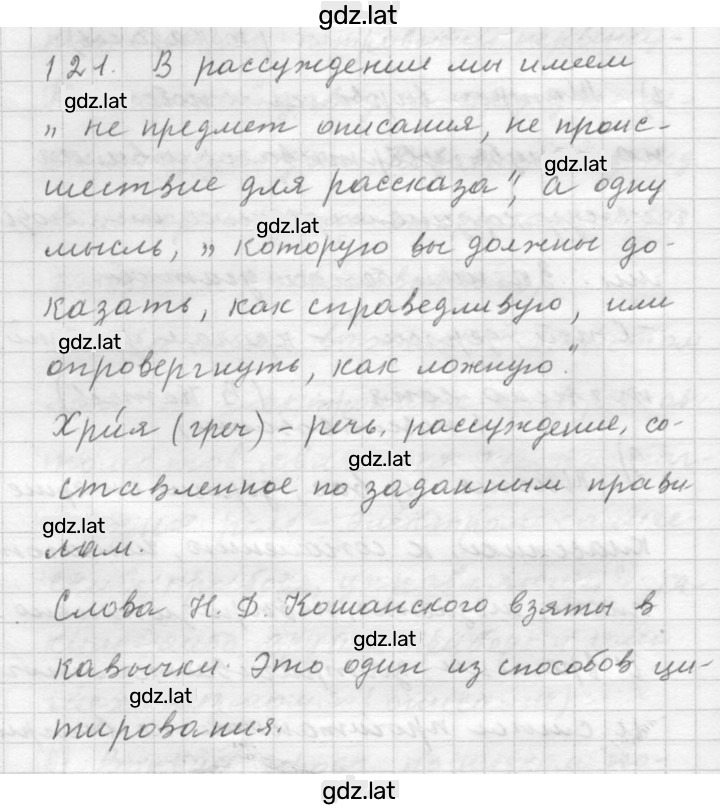 gdz.lat
121. В рассуждении мы имеем
gdz.lat
„ не предмет описания, не проис-
gdz.lat
шествие для рассказа", а одну
gdz.lat
мысль, „ которую вы должны до-
казать, как справедливую, или
gdz.lat
опровергнуть, как ложную."
Хри́я (греч) – речь, рассуждение, со-
gdz.lat
ставленное по заданным прави-
gdz.lat
лам.
Слова Н. Ф. Кошанского взяты в
gdz.lat
кавычки. Это один из способов ци-
gdz.lat
тирования.
gdz.lat